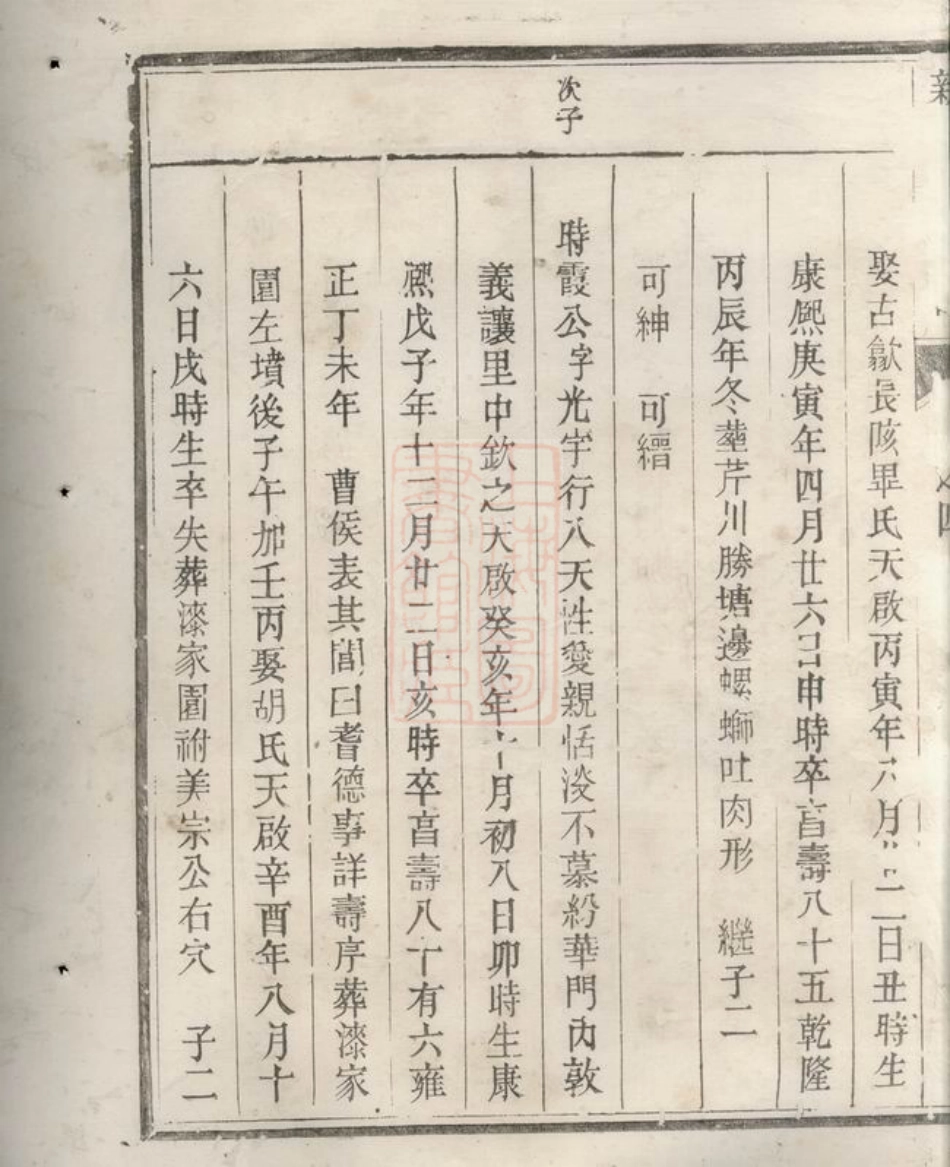 娶古歙長陔畢氏天啟丙寅年六月二日丑時生
康熙庚寅年四月廿六日申時卒享壽八十五乾隆
丙辰年冬塟芹川勝塘邊螺螄吐肉形 繼子二
可紳 可縉
次子
時霞公字光宇行八天性愛親恬淡不慕紛華門內敦
義讓里中欽之天啟癸亥年十月初八日卯時生康
熙戊子年十二月廿二日亥時卒享壽八十有六雍
正丁未年 曹侯表其閭曰耆德事詳壽序葬漆家
園左墳後子午加壬丙娶胡氏天啟辛酉年八月十
六日戌時生卒失葬漆家園祔美宗公右穴 子二